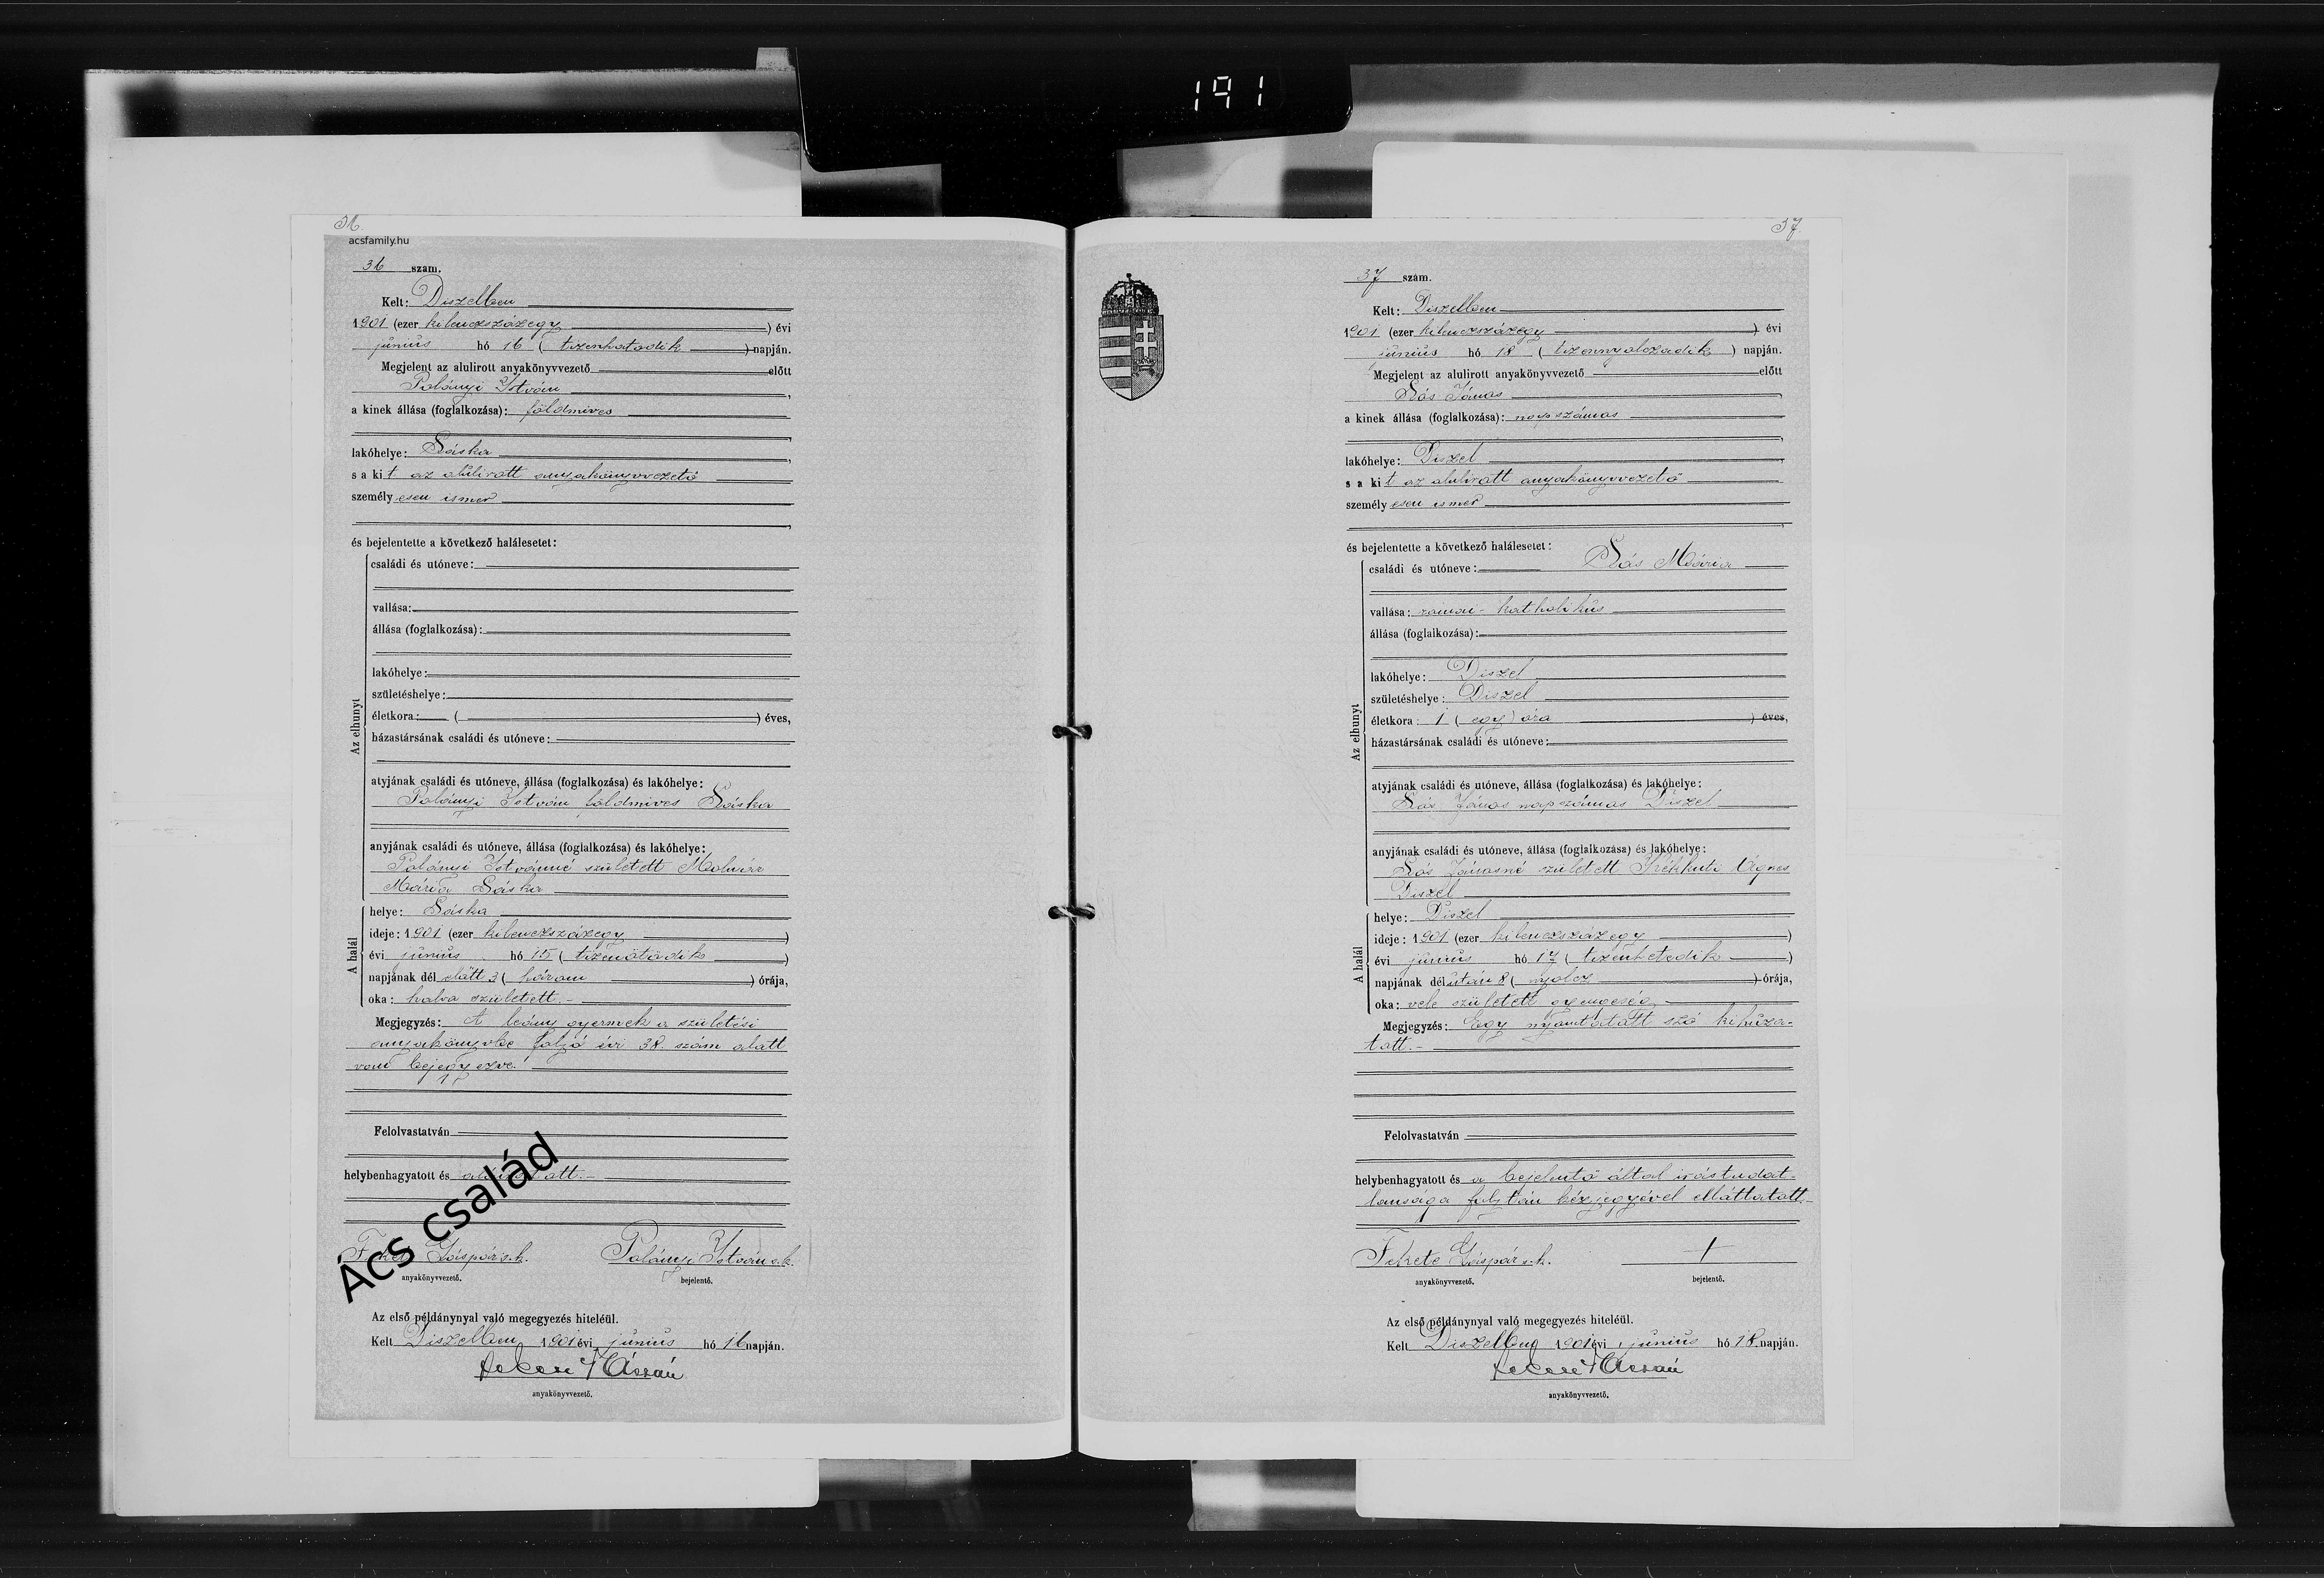 191
36.
acsfamily.hu
36 szám.
Kelt: Diszelben
1901 (ezer kilenczszázegy) évi
június hó 16 (tizenhatodik) napján.
Megjelent az alulirott anyakönyvvezető előtt
Polányi István,
a kinek állása (foglalkozása): földmives
lakóhelye: Sáska,
s a kit az alulirott anyakönyvvezető
személyesen ismer
és bejelentette a következő halálesetet:
Az elhunyt
családi és utóneve:
vallása:
állása (foglalkozása):
lakóhelye:
születéshelye:
életkora: ( ) éves,
házastársának családi és utóneve:
atyjának családi és utóneve, állása (foglalkozása) és lakóhelye:
Polányi István földmives Sáska
anyjának családi és utóneve, állása (foglalkozása) és lakóhelye:
Polányi Istvánné született Molnár
Mária Sáska
A halál
helye: Sáska
ideje: 1901 (ezer kilenczszázegy)
évi június hó 15 (tizenötödik)
napjának dél előtt 3 (három) órája,
oka: halva született.-
Megjegyzés: A leány gyermek a születési
anyakönyvbe folyó évi 38. szám alatt
van bejegyezve.
Felolvastatván
helybenhagyatott és aláiratott.-
Ács család
Fekete Gáspár s.k.
Polányi István s.k.
anyakönyvvezető.
bejelentő.
Az első példánynyal való megegyezés hiteléül.
Kelt Diszelben 1901 évi június hó 16 napján.
anyakönyvvezető.
37.
37 szám.
Kelt: Diszelben
1901 (ezer kilenczszázegy) évi
június hó 18 (tizennyolczadik) napján.
Megjelent az alulirott anyakönyvvezető előtt
Sós János,
a kinek állása (foglalkozása): napszámos
lakóhelye: Diszel
s a kit az alulirott anyakönyvvezető
személyesen ismer
és bejelentette a következő halálesetet:
Az elhunyt
családi és utóneve: Sós Mária
vallása: római-katholikus
állása (foglalkozása):
lakóhelye: Diszel
születéshelye: Diszel
életkora: 1 (egy) óra ) éves,
házastársának családi és utóneve:
atyjának családi és utóneve, állása (foglalkozása) és lakóhelye:
Sós János napszámos Diszel
anyjának családi és utóneve, állása (foglalkozása) és lakóhelye:
Sós Jánosné született Kékkuti Ágnes
Diszel
A halál
helye: Diszel
ideje: 1901 (ezer kilenczszázegy)
évi június hó 17 (tizenhetedik)
napjának dél után 8 (nyolcz) órája,
oka: vele született gyengeség
Megjegyzés: Egy nyomtatott szó kihúza-
tott.-
Felolvastatván
helybenhagyatott és a bejelentő által irástudat-
lansága folytán kézjegyével elláttatott.-
Fekete Gáspár s.k.
+
anyakönyvvezető.
bejelentő.
Az első példánynyal való megegyezés hiteléül.
Kelt Diszelben 1901 évi június hó 18. napján.
anyakönyvvezető.